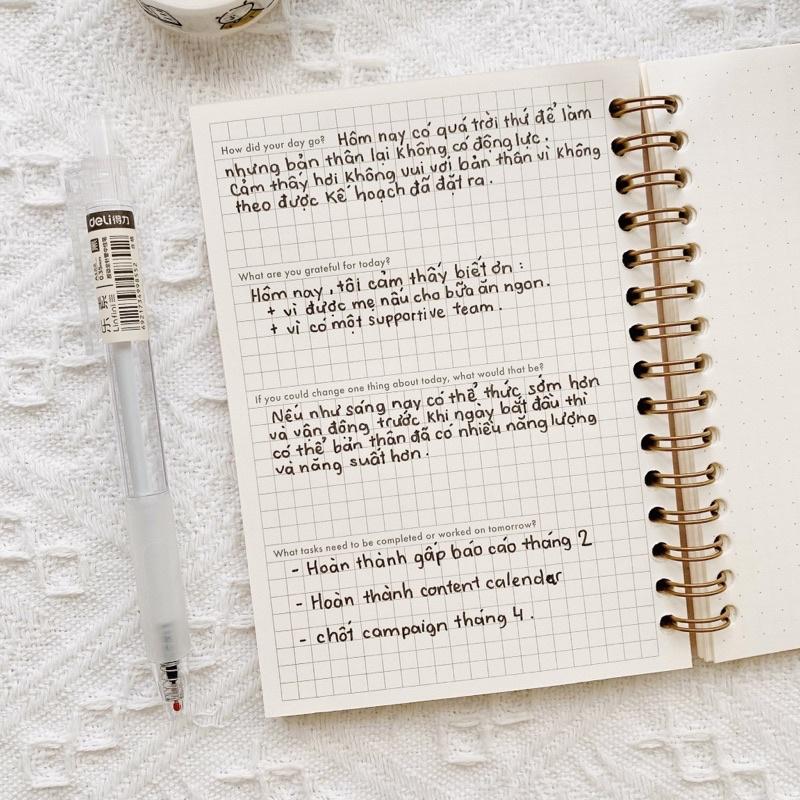 How did your day go? Hôm nay có quá trời thứ để làm
nhưng bản thân lại không có động lực.
Cảm thấy hơi không vui với bản thân vì không
theo được kế hoạch đã đặt ra.
What are you grateful for today?
Hôm nay, tôi cảm thấy biết ơn :
+ vì được mẹ nấu cho bữa ăn ngon.
+ vì có một supportive team.
If you could change one thing about today, what would that be?
Nếu như sáng nay có thể thức sớm hơn
và vận động trước khi ngày bắt đầu thì
có thể bản thân đã có nhiều năng lượng
và năng suất hơn.
What tasks need to be completed or worked on tomorrow?
- Hoàn thành gấp báo cáo tháng 2
- Hoàn thành content calendar
- chốt campaign tháng 4.
deli 得力
0.35mm
乐素
Linfini
6921734998552